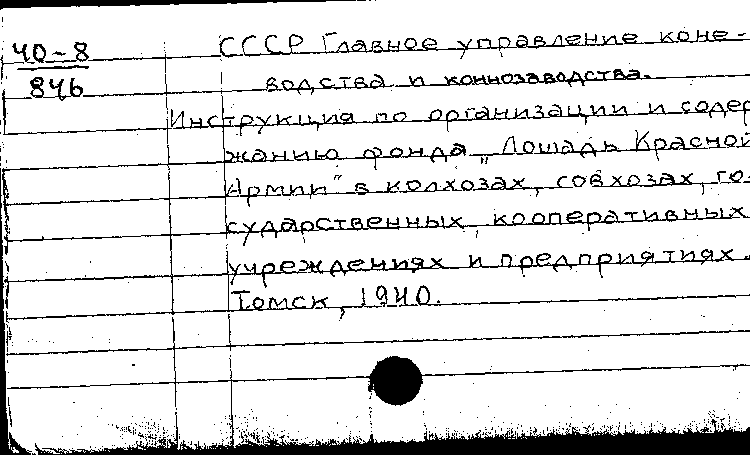 40-8
846
СССР Главное управление коне-
водства и коннозаводства.
Инструкция по организации и содер
жанию фонда „Лошадь Красной
Армии" в колхозах, совхозах, го-
сударственных, кооперативных
учреждениях и предприятиях.
Томск, 1940.